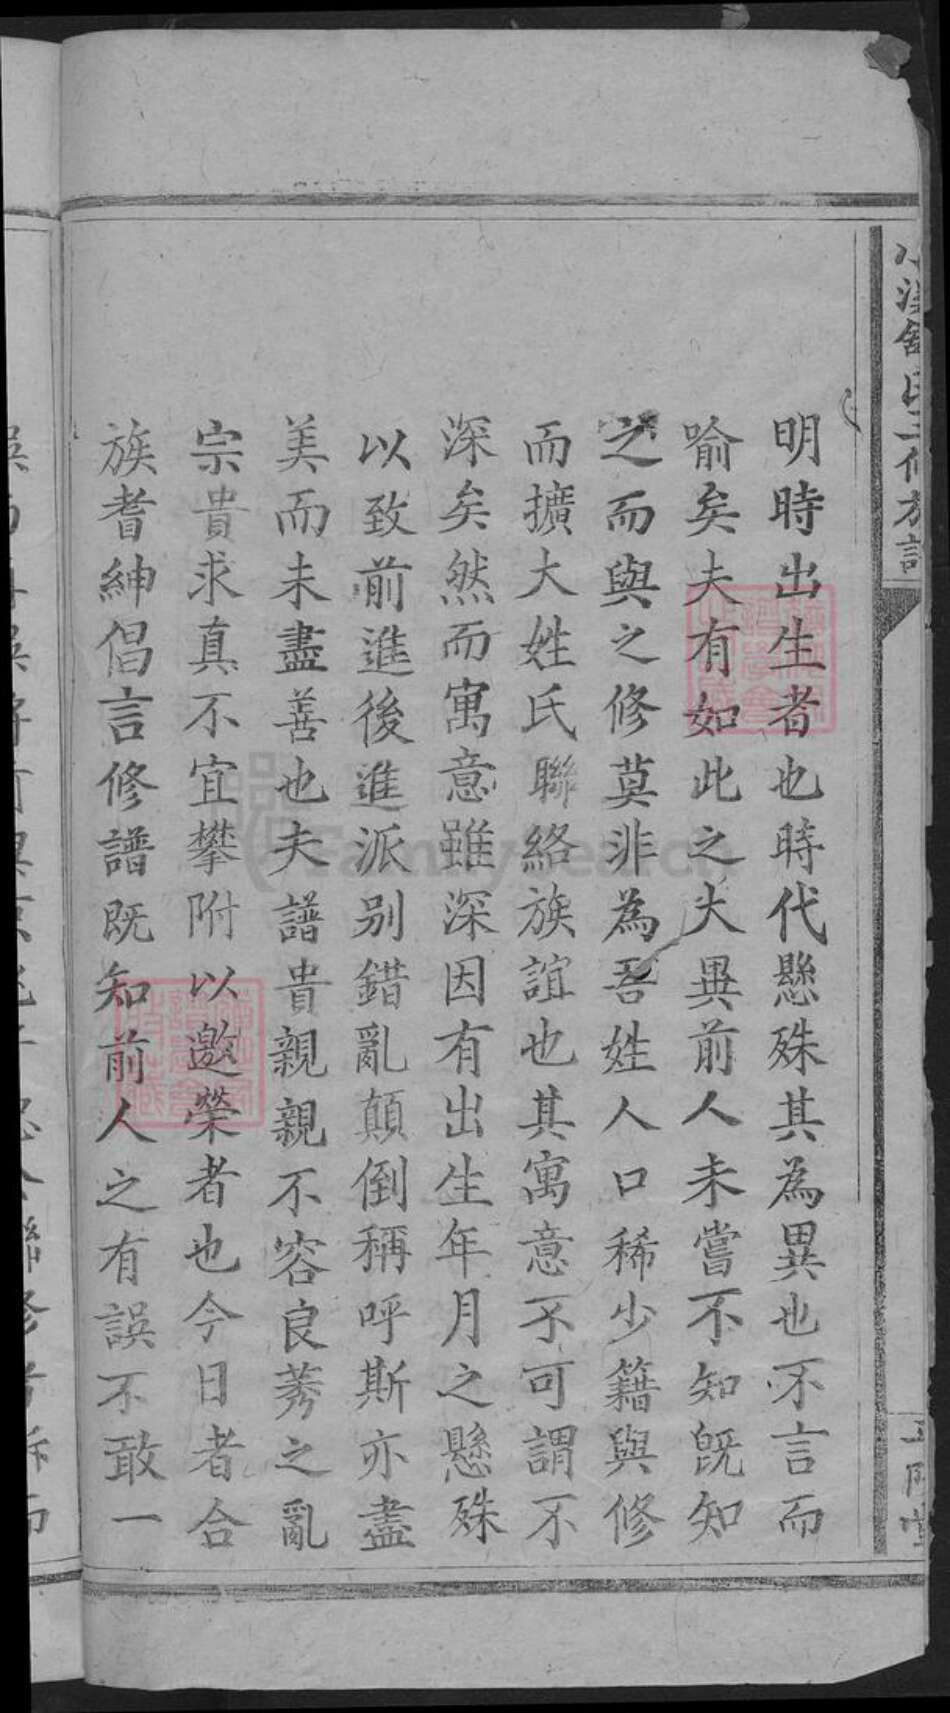 明時出生者也時代懸殊其為異也不言而
喻矣夫有如此之大異前人未嘗不知既知
之而與之修莫非為吾姓人口稀少籍與修
而擴大姓氏聯絡族誼也其寓意不可謂不
深矣然而寓意雖深因有出生年月之懸殊
以致前進後進派别錯亂顛倒稱呼斯亦盡
美而未盡善也夫譜貴親親不容良莠之亂
宗貴求真不宜攀附以邀榮者也今日者合
族耆紳倡言修譜既知前人之有誤不敢一